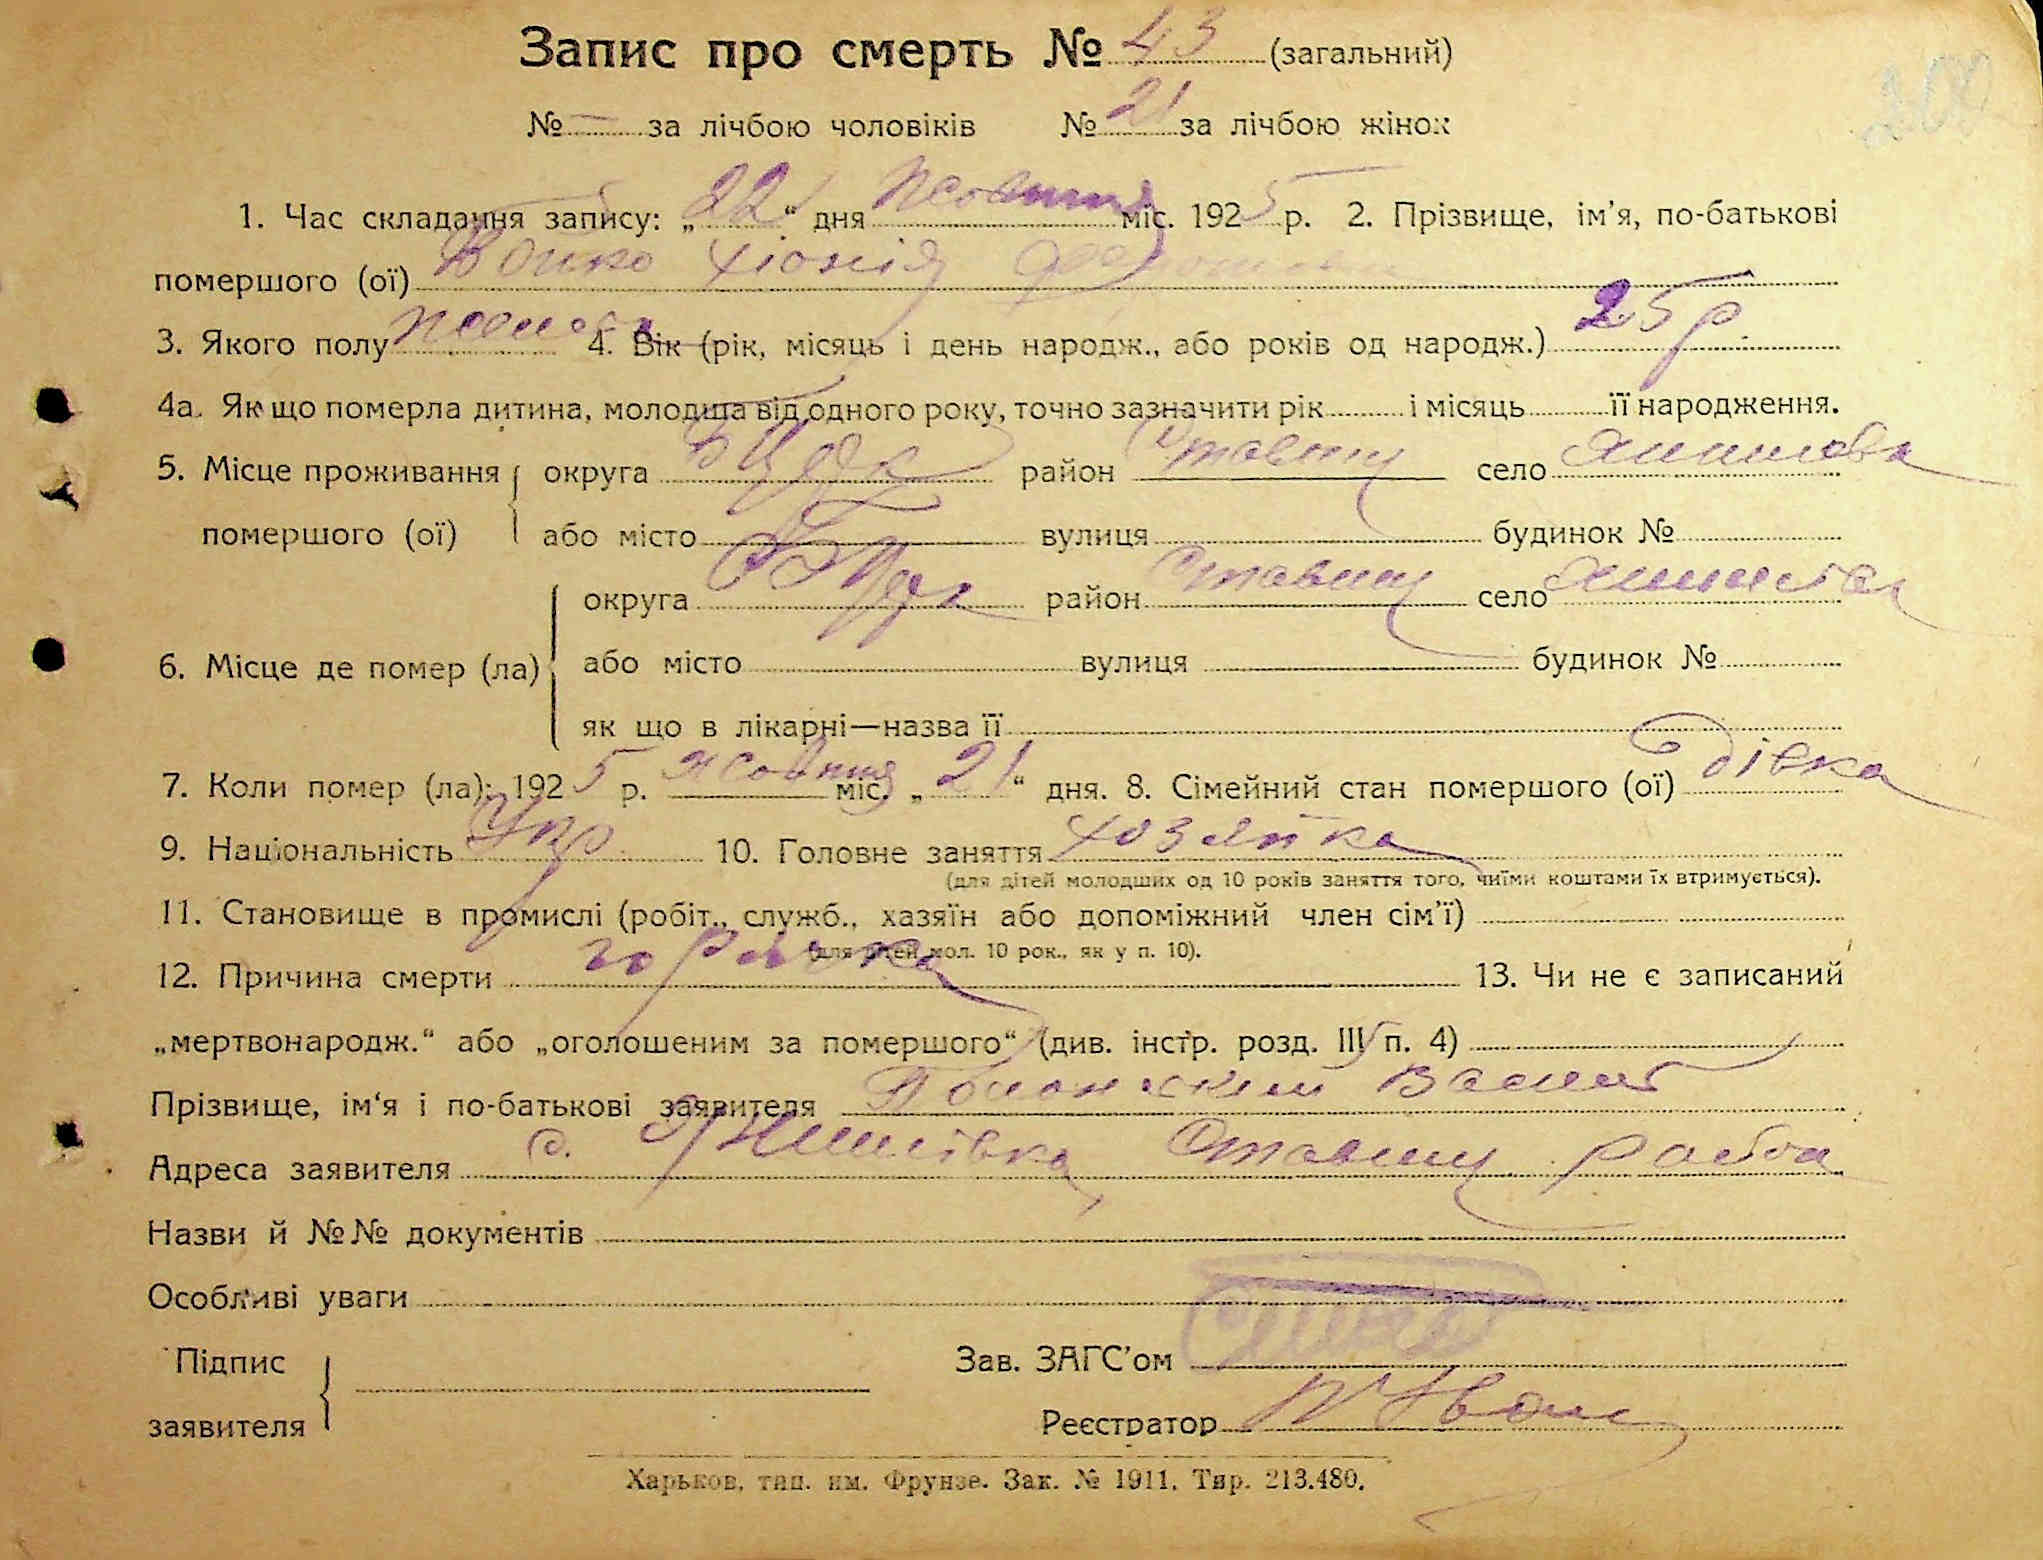 200
Запис про смерть № 43 (загальний)
№ — за лічбою чоловіків № 21 за лічбою жінок
1. Час складання запису: „22“ дня Жовтня міс. 1925 р. 2. Прізвище, ім'я, по-батькові
помершого (ої) Бойко Хіонія
3. Якого полу 4. Вік (рік, місяць і день народж., або років од народж.) 25 р.
4а. Як що померла дитина, молодша від одного року, точно зазначити рік і місяць її народження.
5. Місце проживання округа БЦрк район Ставищ село
помершого (ої) або місто вулиця будинок №
округа БЦрк район Ставищ село
6. Місце де помер (ла) або місто вулиця будинок №
як що в лікарні—назва її
7. Коли помер (ла): 1925 р. Жовтня міс. „21“ дня. 8. Сімейний стан помершого (ої) дівка
9. Національність Укр. 10. Головне заняття хозяйка
(для дітей молодших од 10 років заняття того, чиїми коштами їх втримується).
11. Становище в промислі (робіт., служб., хазяїн або допоміжний член сім'ї)
(для дітей мол. 10 рок., як у п. 10).
12. Причина смерти горячка 13. Чи не є записаний
„мертвонародж.“ або „оголошеним за помершого“ (див. інстр. розд. III п. 4)
Прізвище, ім'я і по-батькові заявителя
Адреса заявителя с. Ставищ района
Назви й №№ документів
Особливі уваги
Підпис Зав. ЗАГС'ом
заявителя Реєстратор
Харьков, тип. им. Фрунзе. Зак. № 1911. Тир. 213.480.